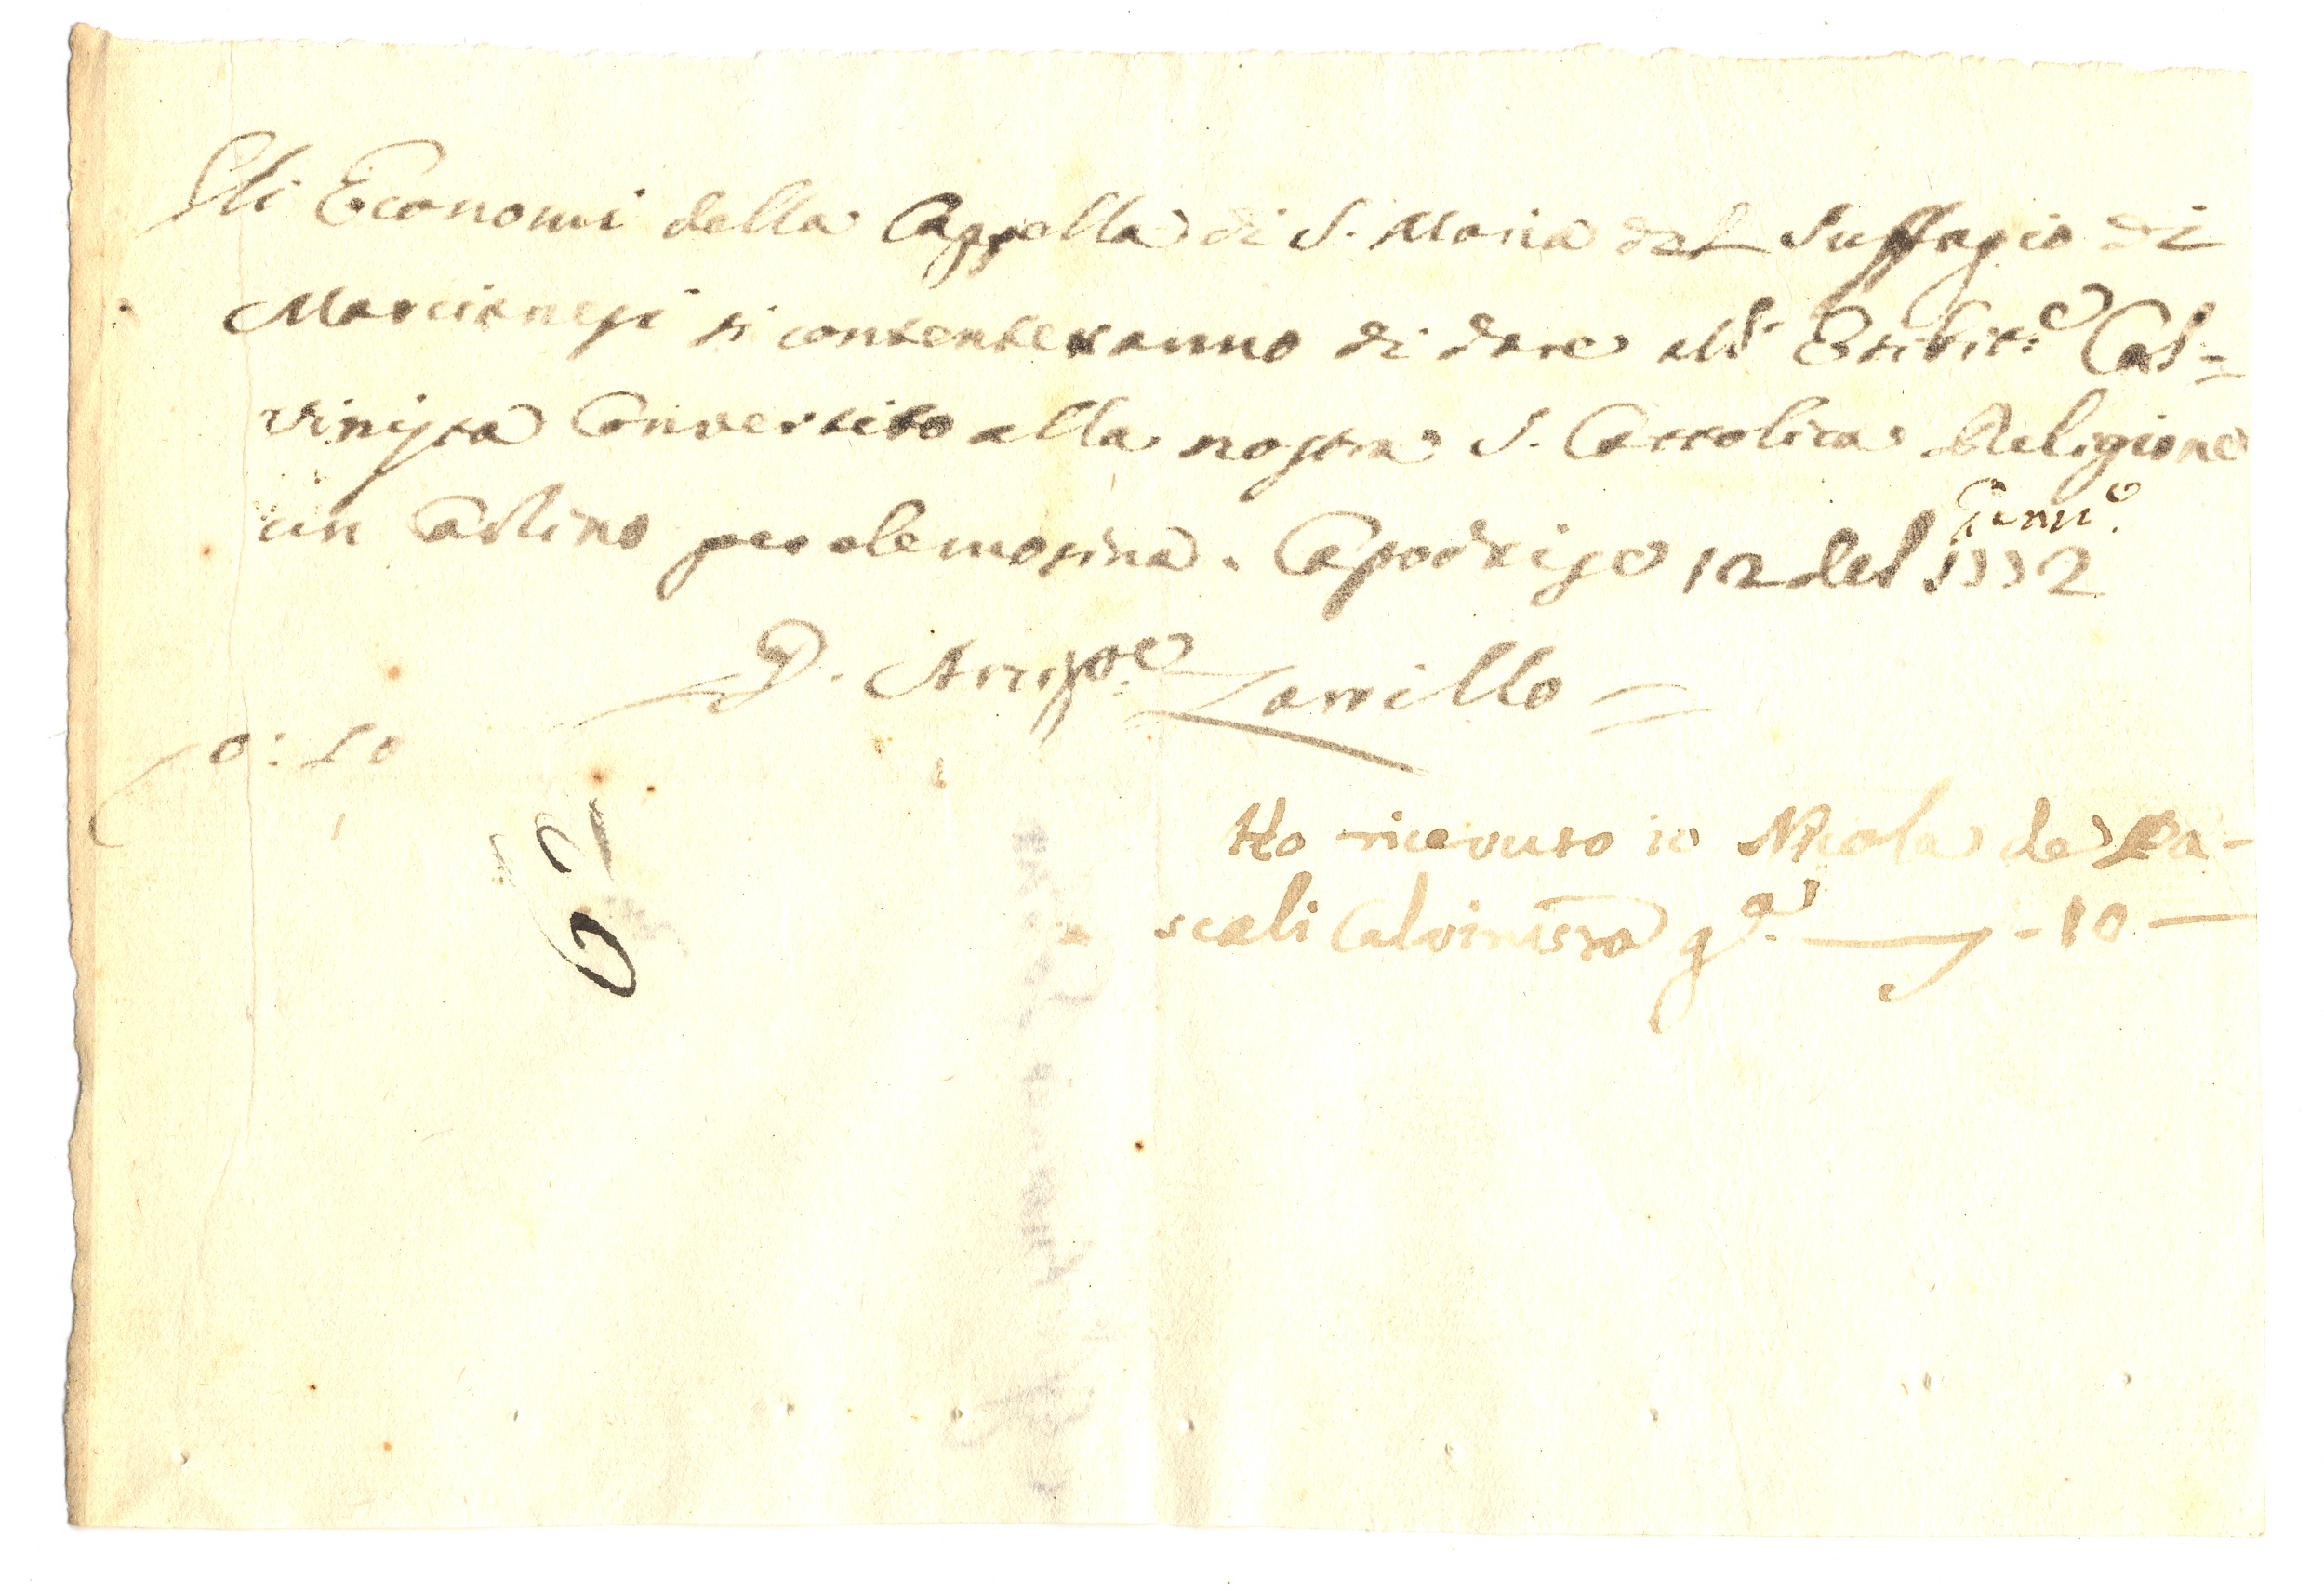 Gli Economi della Cappella di S. Maria del Suffragio di
Marcianesi si contenteranno di dare all' Esibit.e Cal=
vinista Convertito alla nostra S. Cattolica Religione
un Carlino per elemosina. Capodrise 12 del Genn.o 1772
D. Arcip.te Zarrillo =
0:10
Ho ricevuto io Nicola de Pa-
scali Calvinista g.a - 10 -
62